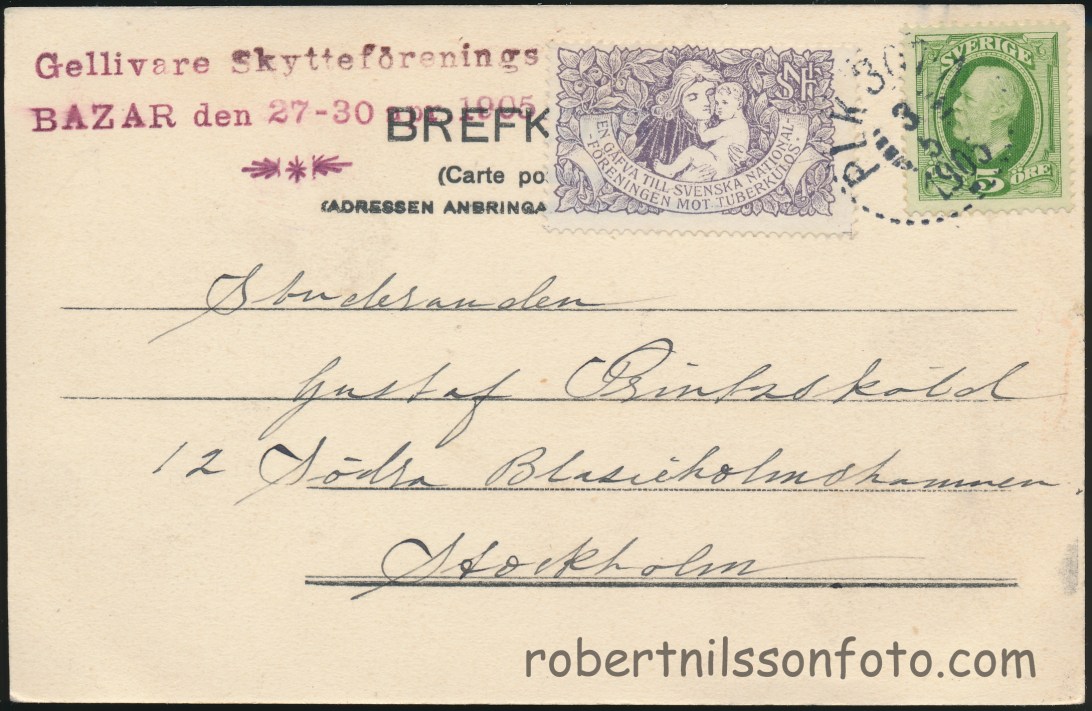 Gellivare Skytteförenings
BAZAR den 27-30 apr. 1905
BREFK
(Carte po
(ADRESSEN ANBRINGA
SNFT
EN GÅFVA TILL SVENSKA NATIONAL-
FÖRENINGEN MOT TUBERKULOS.
PLK 307
3
1905
SVERIGE
5 ÖRE
Studeranden
Gustaf Printzsköld
12 Södra Blasieholmshamnen.
Stockholm
robertnilssonfoto.com